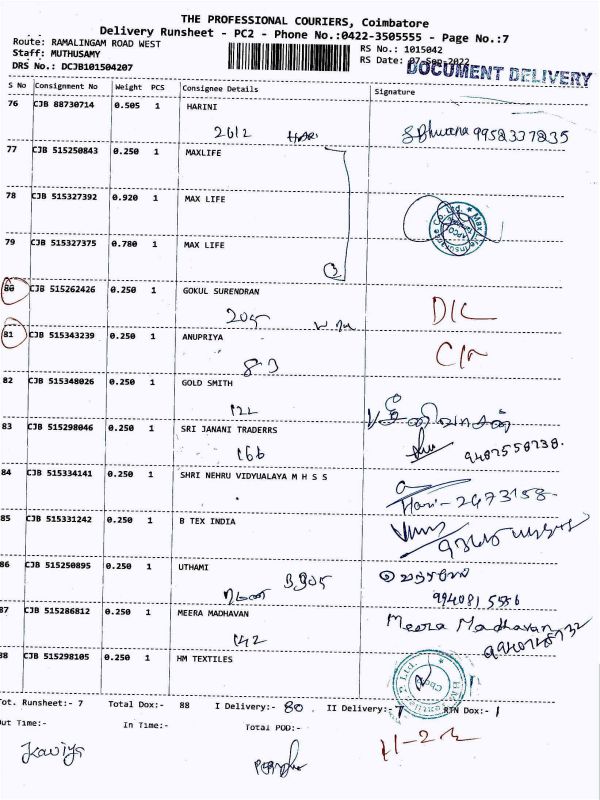 THE PROFESSIONAL COURIERS, Coimbatore
Delivery Runsheet - PC2 - Phone No.:0422-3505555 - Page No.:7
Route: RAMALINGAM ROAD WEST
RS No.: 1015042
Staff: MUTHUSAMY
RS Date: 07-Sep-2022
DRS No.: DCJB101504207
DOCUMENT DELIVERY
S No Consignment No Weight PCS Consignee Details Signature
76 CJB 88730714 0.505 1 HARINI
2612
77 CJB 515250843 0.250 1 MAXLIFE
78 CJB 515327392 0.920 1 MAX LIFE
79 CJB 515327375 0.780 1 MAX LIFE
3
80 CJB 515262426 0.250 1 GOKUL SURENDRAN
D/L
205
81 CJB 515343239 0.250 1 ANUPRIYA
83
82 CJB 515348026 0.250 1 GOLD SMITH
122
83 CJB 515298046 0.250 1 SRI JANANI TRADERRS
166
84 CJB 515334141 0.250 1 SHRI NEHRU VIDYUALAYA M H S S
Hari - 2473158
85 CJB 515331242 0.250 1 B TEX INDIA
86 CJB 515250895 0.250 1 UTHAMI
87 CJB 515286812 0.250 1 MEERA MADHAVAN
Meera Madhavan
142
88 CJB 515298105 0.250 1 HM TEXTILES
Tot. Runsheet:- 7 Total Dox:- 88 I Delivery:- 80 II Delivery:- 7 RTN Dox:- 1
Out Time:- In Time:- Total POD:-
Kaviya